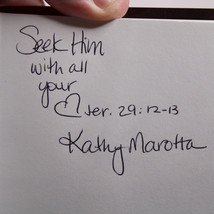 Seek Him
with all
your
♡ Jer. 29:12-13
Kathy Marotta